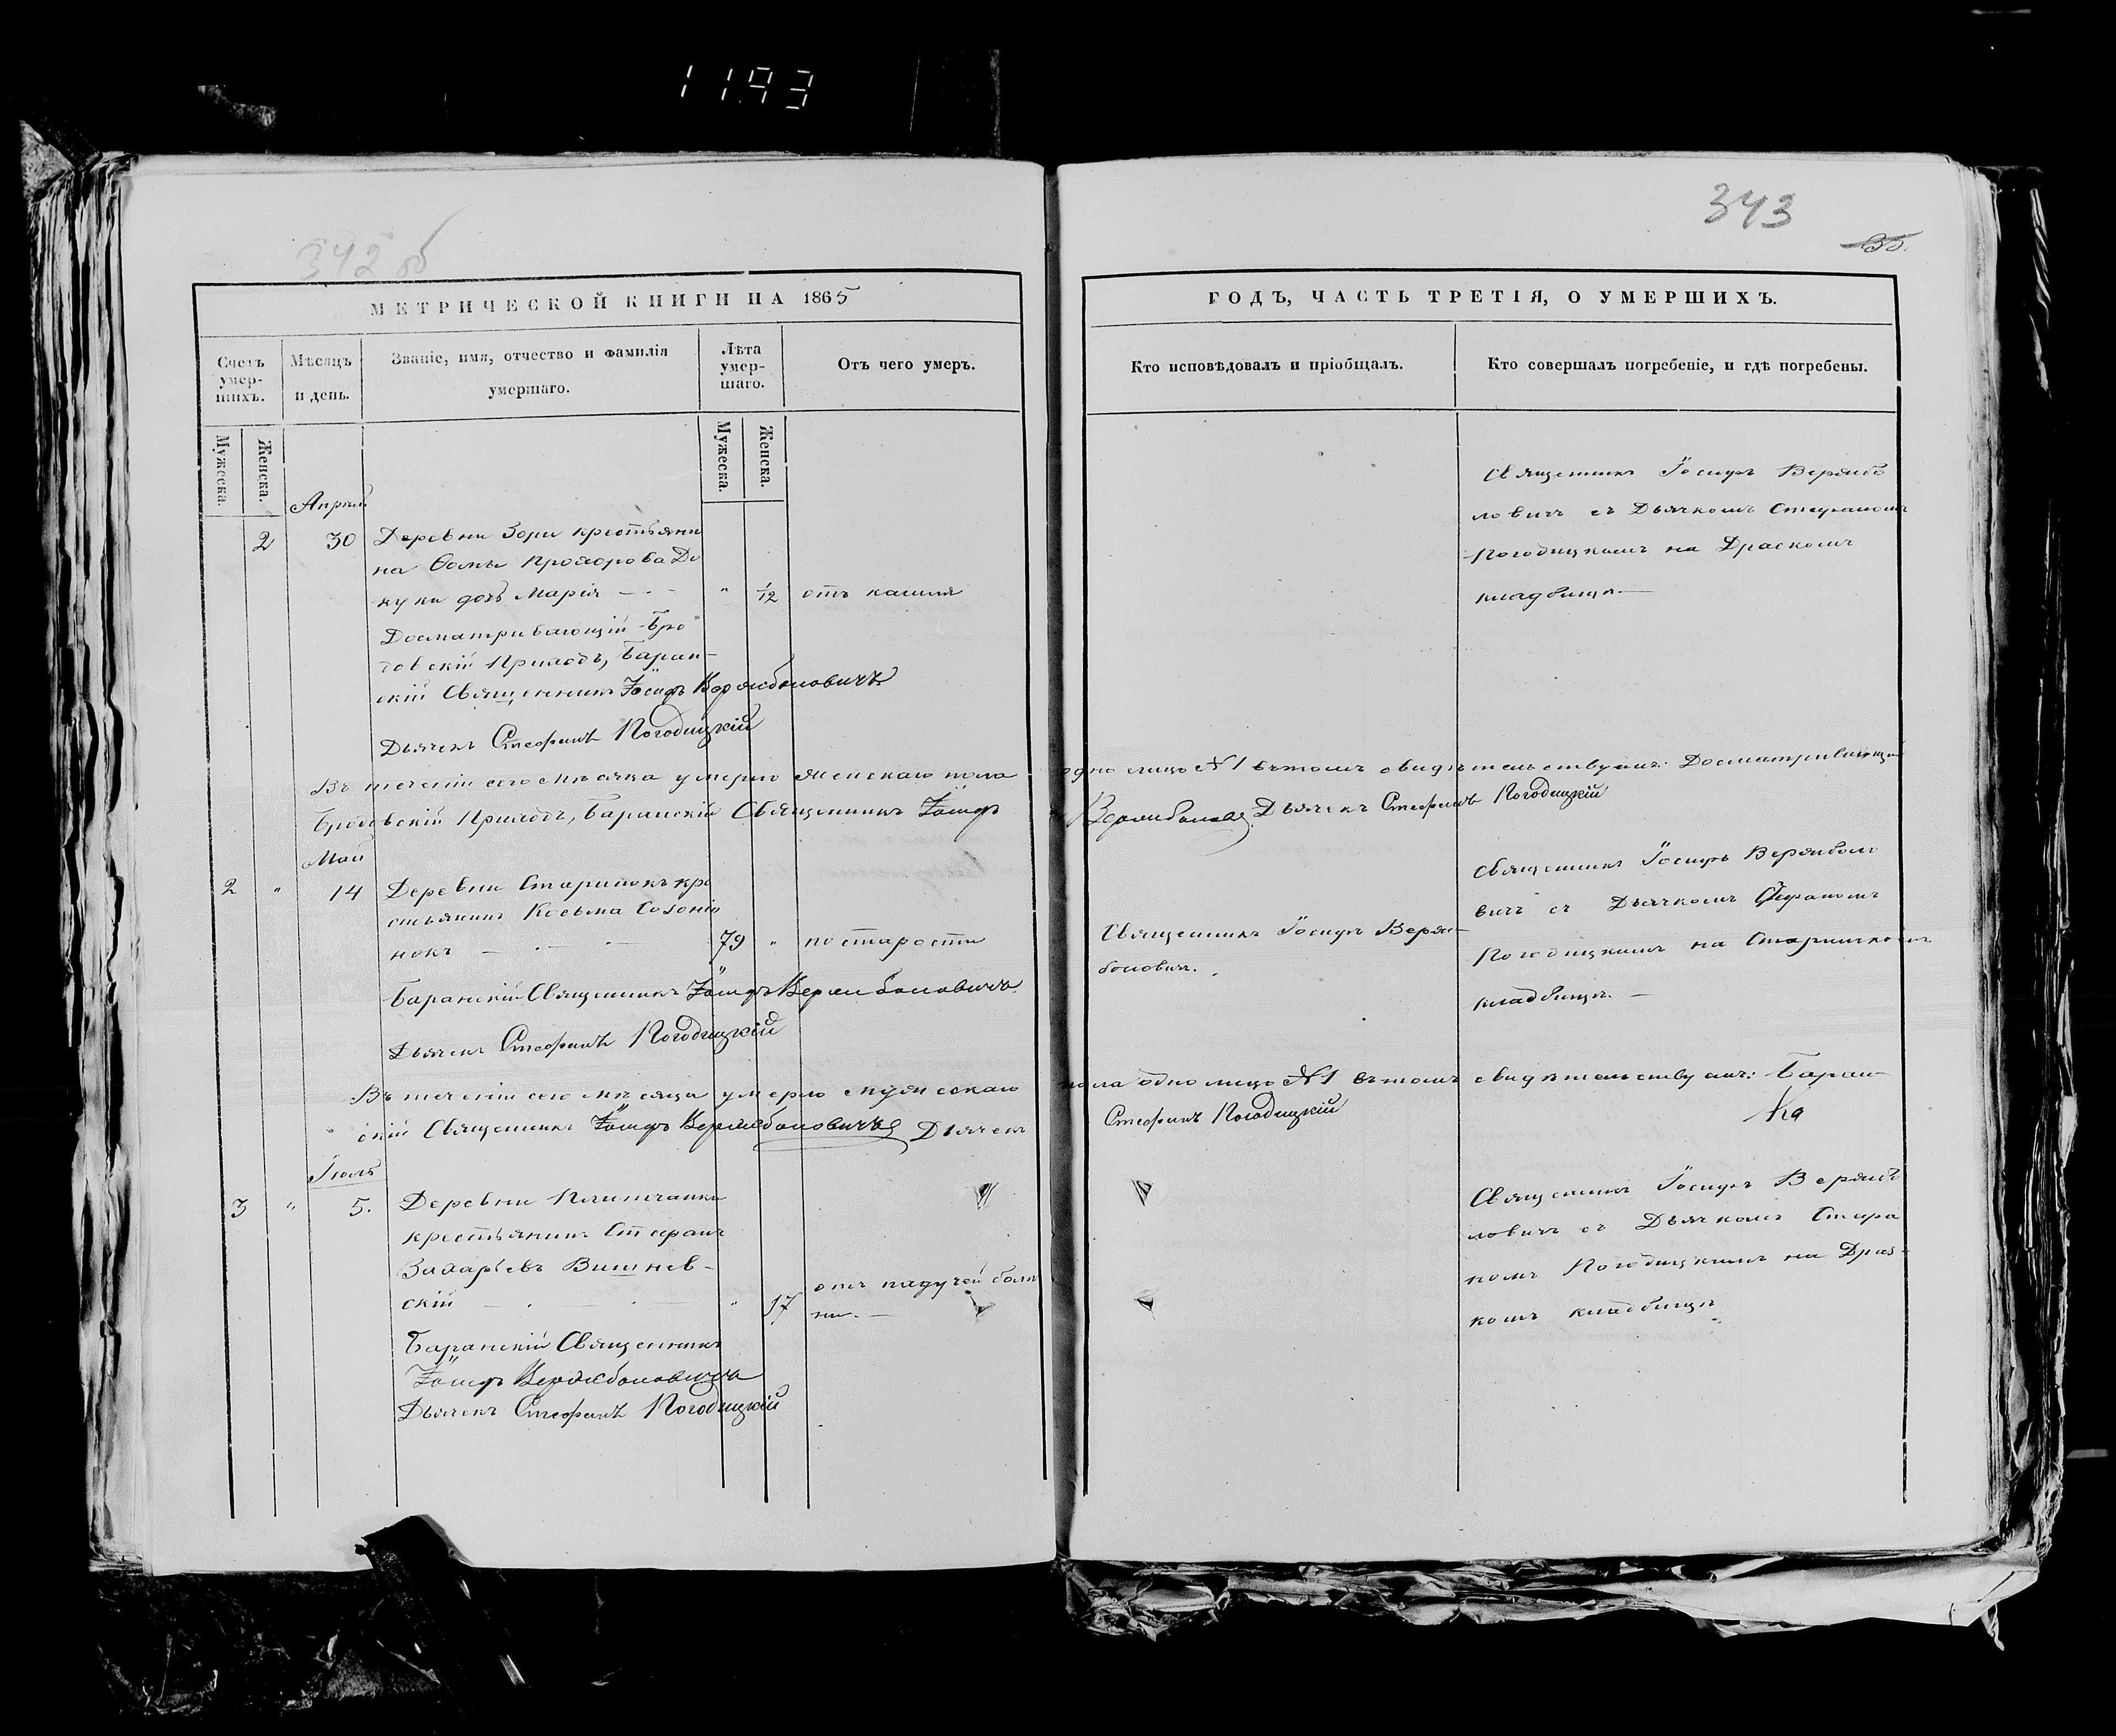 1193
342 об
343
35.
МЕТРИЧЕСКОЙ КНИГИ НА 1865
ГОДЪ, ЧАСТЬ ТРЕТІЯ, О УМЕРШИХЪ.
Счетъ умер-шихъ.
Мѣсяцъ и день.
Званіе, имя, отчество и фамилія умершаго.
Лѣта умер-шаго.
Отъ чего умеръ.
Кто исповѣдовалъ и пріобщалъ.
Кто совершалъ погребеніе, и гдѣ погребены.
Мужеска.
Женска.
Мужеска.
Женска.
Апрѣль
2 30 Деревни Зори крестьяни
на Ѳомы Прохорова До
куки дочь Марія — " 1/12 отъ кашля
Досматривающій Бро
довскій Приходъ, Баран-
скій Священникъ Іосифъ Вержболовичъ
Дьячекъ Стефанъ Погодицкій
Священникъ Іосифъ Вержбо
ловичъ съ Дьячкомъ Стефаномъ
Погодицкимъ на Драскомъ
кладбищѣ. —
Въ теченіи сего мѣсяца умерло женскаго пола одно лицо №1 въ томъ свидѣтельствуемъ: Досматривающій
Бродовскій Приходъ, Баранскій Священникъ Іосифъ Вержболовичъ Дьячекъ Стефанъ Погодицкій
Май
2 " 14 Деревни Старинокъ кре
стьянинъ Косьма
нокъ — 79 " по старости
Баранскій Священникъ Іосифъ Вержболовичъ
Дьячекъ Стефанъ Погодицкій
Священникъ Іосифъ Верж-
боловичъ.
Священникъ Іосифъ Вержболо
вичъ съ Дьячкомъ Стефаномъ
Погодицкимъ на Старинскомъ
кладбищѣ. —
Въ теченіи сего мѣсяца умерло мужескаго пола одно лицо №1 въ томъ свидѣтельствуемъ: Баран-
скій Священникъ Іосифъ Вержболовичъ Дьячекъ Стефанъ Погодицкій
Іюль
3 " 5. Деревни
крестьянинъ Стефанъ
Захарьевъ Вишнев-
скій — " 17 отъ падучей болѣз
ни. —
Баранскій Священникъ
Іосифъ Вержболовичъ
Дьячекъ Стефанъ Погодицкій
Священникъ Іосифъ Вержбо
ловичъ съ Дьячкомъ Стефа
номъ Погодицкимъ на Драс-
комъ кладбищѣ.